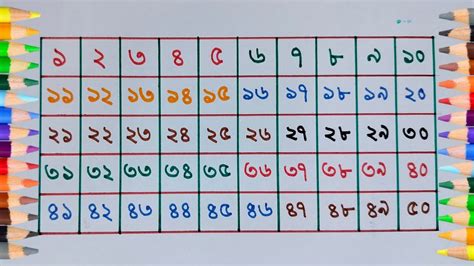 ১ ২ ৩ ৪ ৫ ৬ ৭ ৮ ৯ ১০
১১ ১২ ১৩ ১৪ ১৫ ১৬ ১৭ ১৮ ১৯ ২০
২১ ২২ ২৩ ২৪ ২৫ ২৬ ২৭ ২৮ ২৯ ৩০
৩১ ৩২ ৩৩ ৩৪ ৩৫ ৩৬ ৩৭ ৩৮ ৩৯ ৪০
৪১ ৪২ ৪৩ ৪৪ ৪৫ ৪৬ ৪৭ ৪৮ ৪৯ ৫০